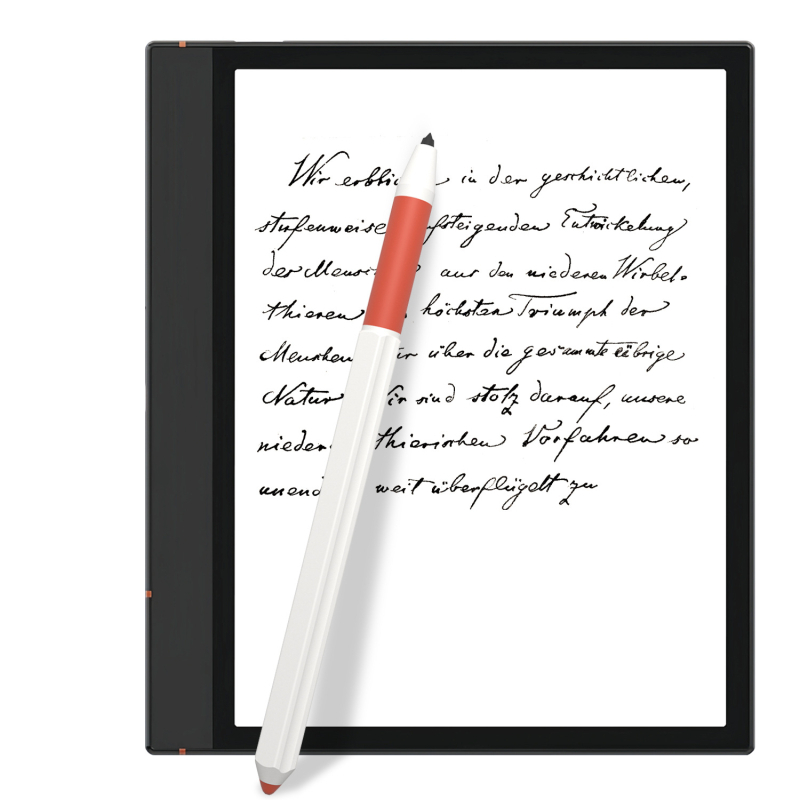 Wir in der geschichtlichen,
stufenweise aufsteigenden Entwickelung
der Mensch aus den niederen Wirbel-
thieren höchsten Triumph der
Menschen über die gesammte übrige
Natur Wir sind stolz darauf, unsere
niederen thierischen Vorfahren so
unend weit überflügelt zu